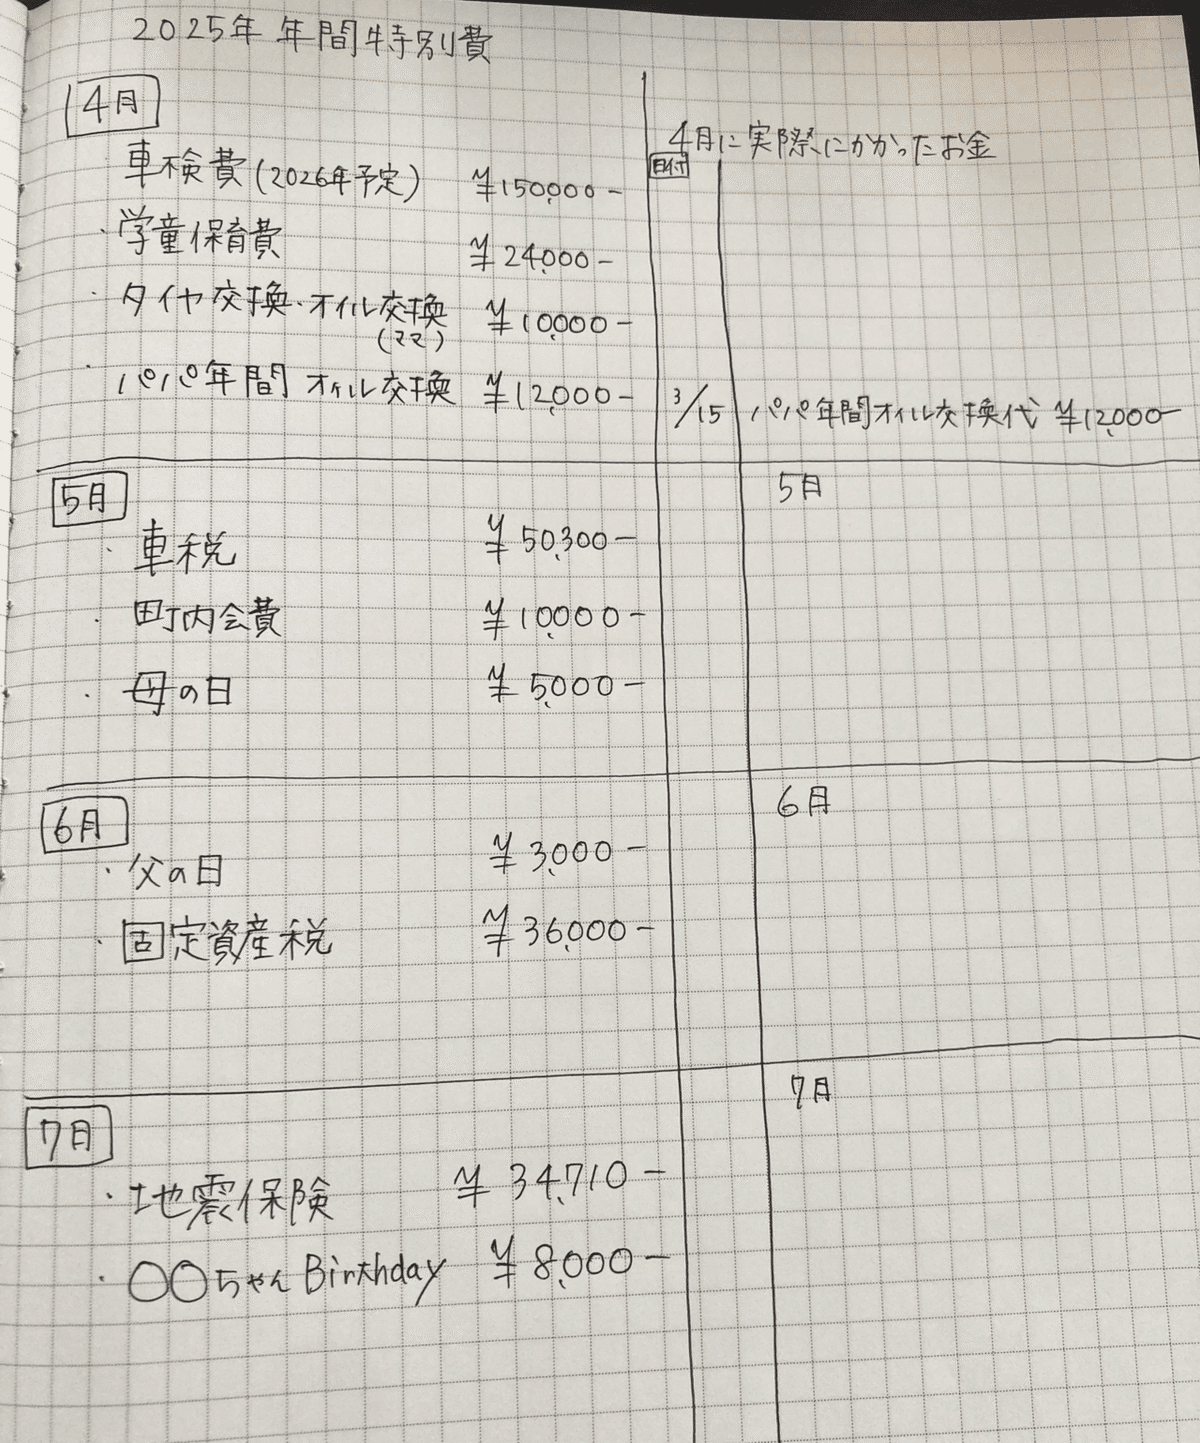 2025年 年間特別費
4月
車検費(2026年予定) ¥150,000-
・学童保育費 ¥24,000-
・タイヤ交換・オイル交換 ¥10,000-
(ママ)
・パパ年間 オイル交換 ¥12,000-
4月に実際にかかったお金
日付
3/15 パパ年間オイル交換代 ¥12,000-
5月
・車税 ¥50,300-
・町内会費 ¥10,000-
・母の日 ¥5,000-
5月
6月
・父の日 ¥3,000-
・固定資産税 ¥36,000-
6月
7月
・地震保険 ¥34,710-
・〇〇ちゃん Birthday ¥8,000-
7月